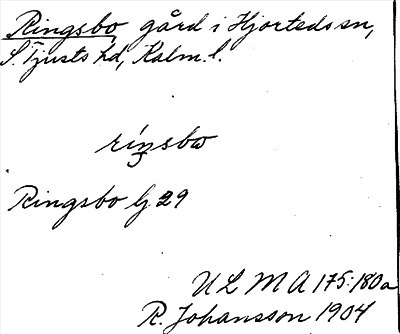 Ringsbo gård i Hjorteds sn,
S. Tjusts hd, Kalm. l.
Ringsbo lj 29
ULMA 175:180a
R. Johansson 1904